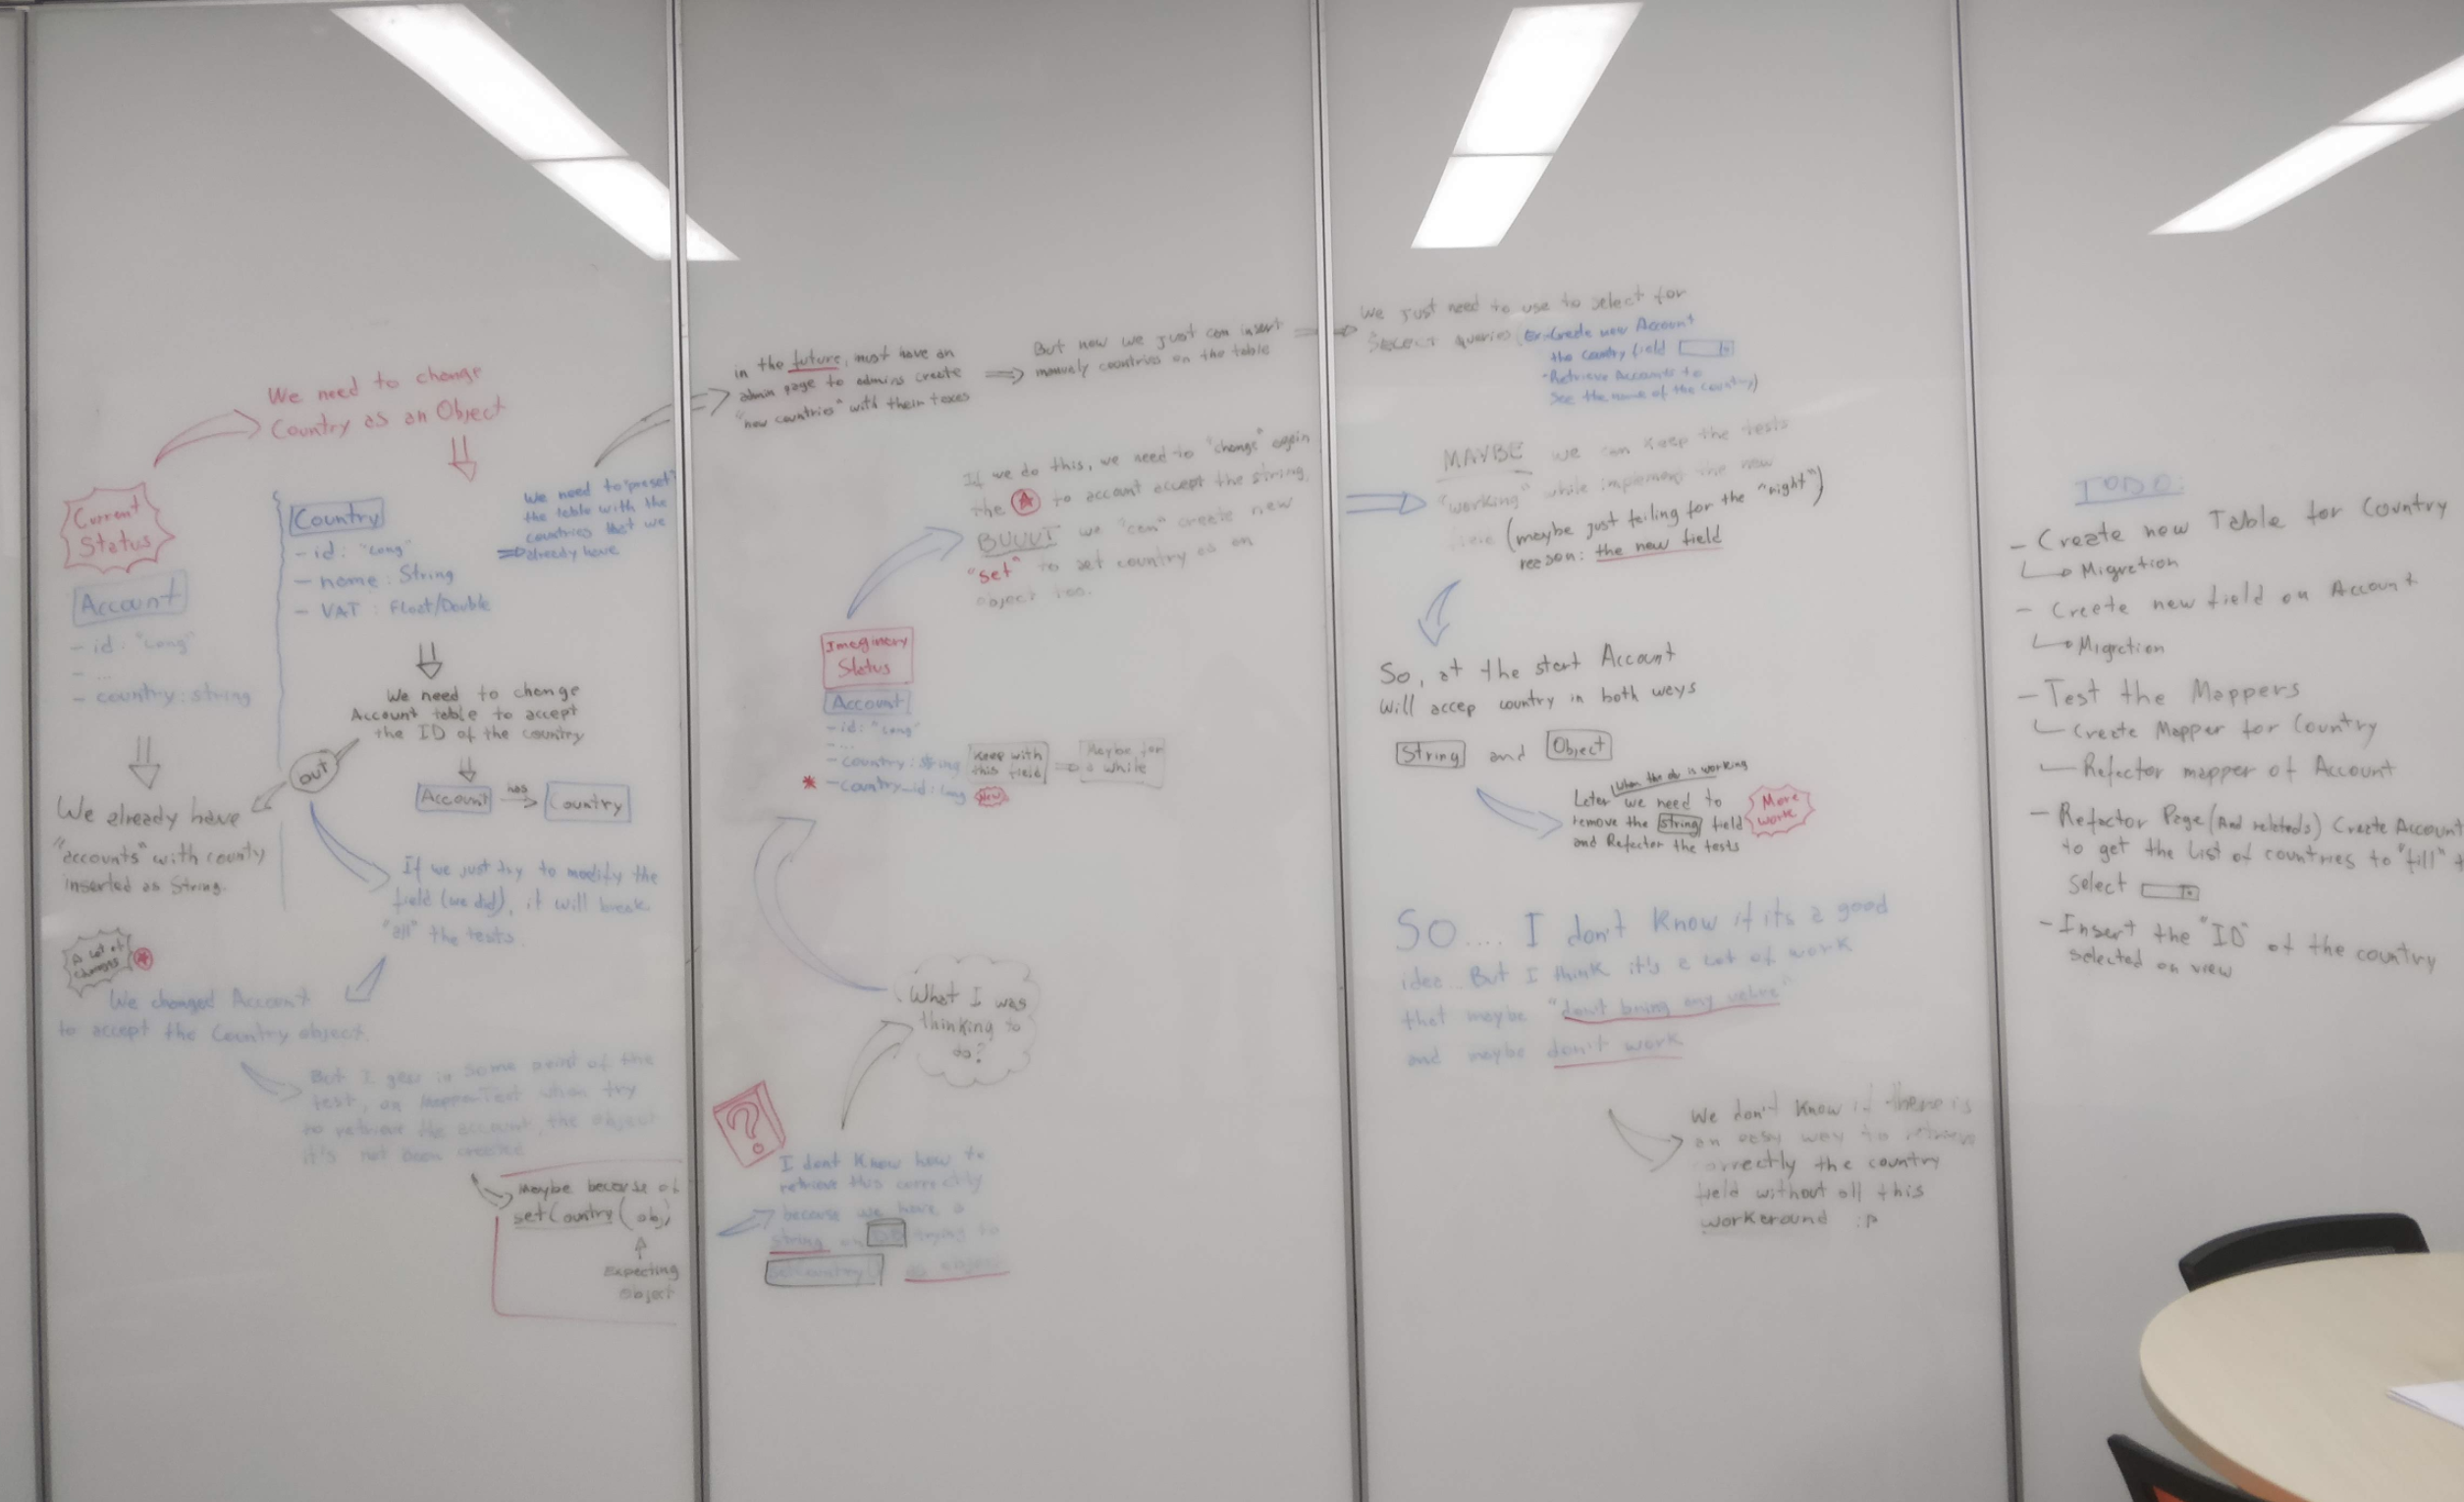 We need to change
Country as an Object
Current
Status
Account
- id: "Long"
- ...
- country: string
We already have
"accounts" with county
inserted as String.
Country
- id: "Long"
- name: String
- VAT: Float/Double
We need to "preset"
the table with the
countries that we
already have
We need to change
Account table to accept
the ID of the country
OUT
Account
has
Country
If we just try to modify the
field (we did), it will break
"all" the tests.
A lot of
changes
We changed Account
to accept the Country object.
But I in some point of the
test, on MapperTest when try
to retrieve the account, the object
it's not been created
Maybe because of
setCountry (obj)
Expecting
object
in the future, must have an
admin page to admins create
"new countries" with their taxes
But now we just can insert
manualy countries on the table
We just need to use to select for
SELECT queries (Ex: Create new Account
the country field
- Retrieve Accounts to
see the name of the country)
If we do this, we need to "change" again
the A to account accept the string,
BUUUT we "can" create new
"set" to set country as an
object too.
Imaginary
Status
Account
- id: "Long"
- ...
- country: string
Keep with
this field
Maybe for
a while
* - country_id: long
New
What I was
thinking to
do?
?
I dont know how to
retrieve this correctly
because we have a
string on DB trying to
setCountry() as object
MAYBE we can keep the tests
"working" while implement the new
(maybe just failing for the "right")
reason: the new field
So, at the start Account
Will accep country in both ways
String and Object
When the is working
Later we need to
remove the string field
and Refactor the tests
More
work
SO.... I don't know if its a good
idea.. But I think it's a lot of work
that maybe "don't bring any value"
and maybe don't work
We don't know if there is
an easy way to retrieve
correctly the country
field without all this
workaround :P
TODO:
- Create new Table for Country
Migration
- Create new field on Account
Migration
- Test the Mappers
Create Mapper for Country
Refactor mapper of Account
- Refactor Page (And relateds) Create Account
to get the List of countries to "fill"
select
- Insert the "ID" of the country
selected on view